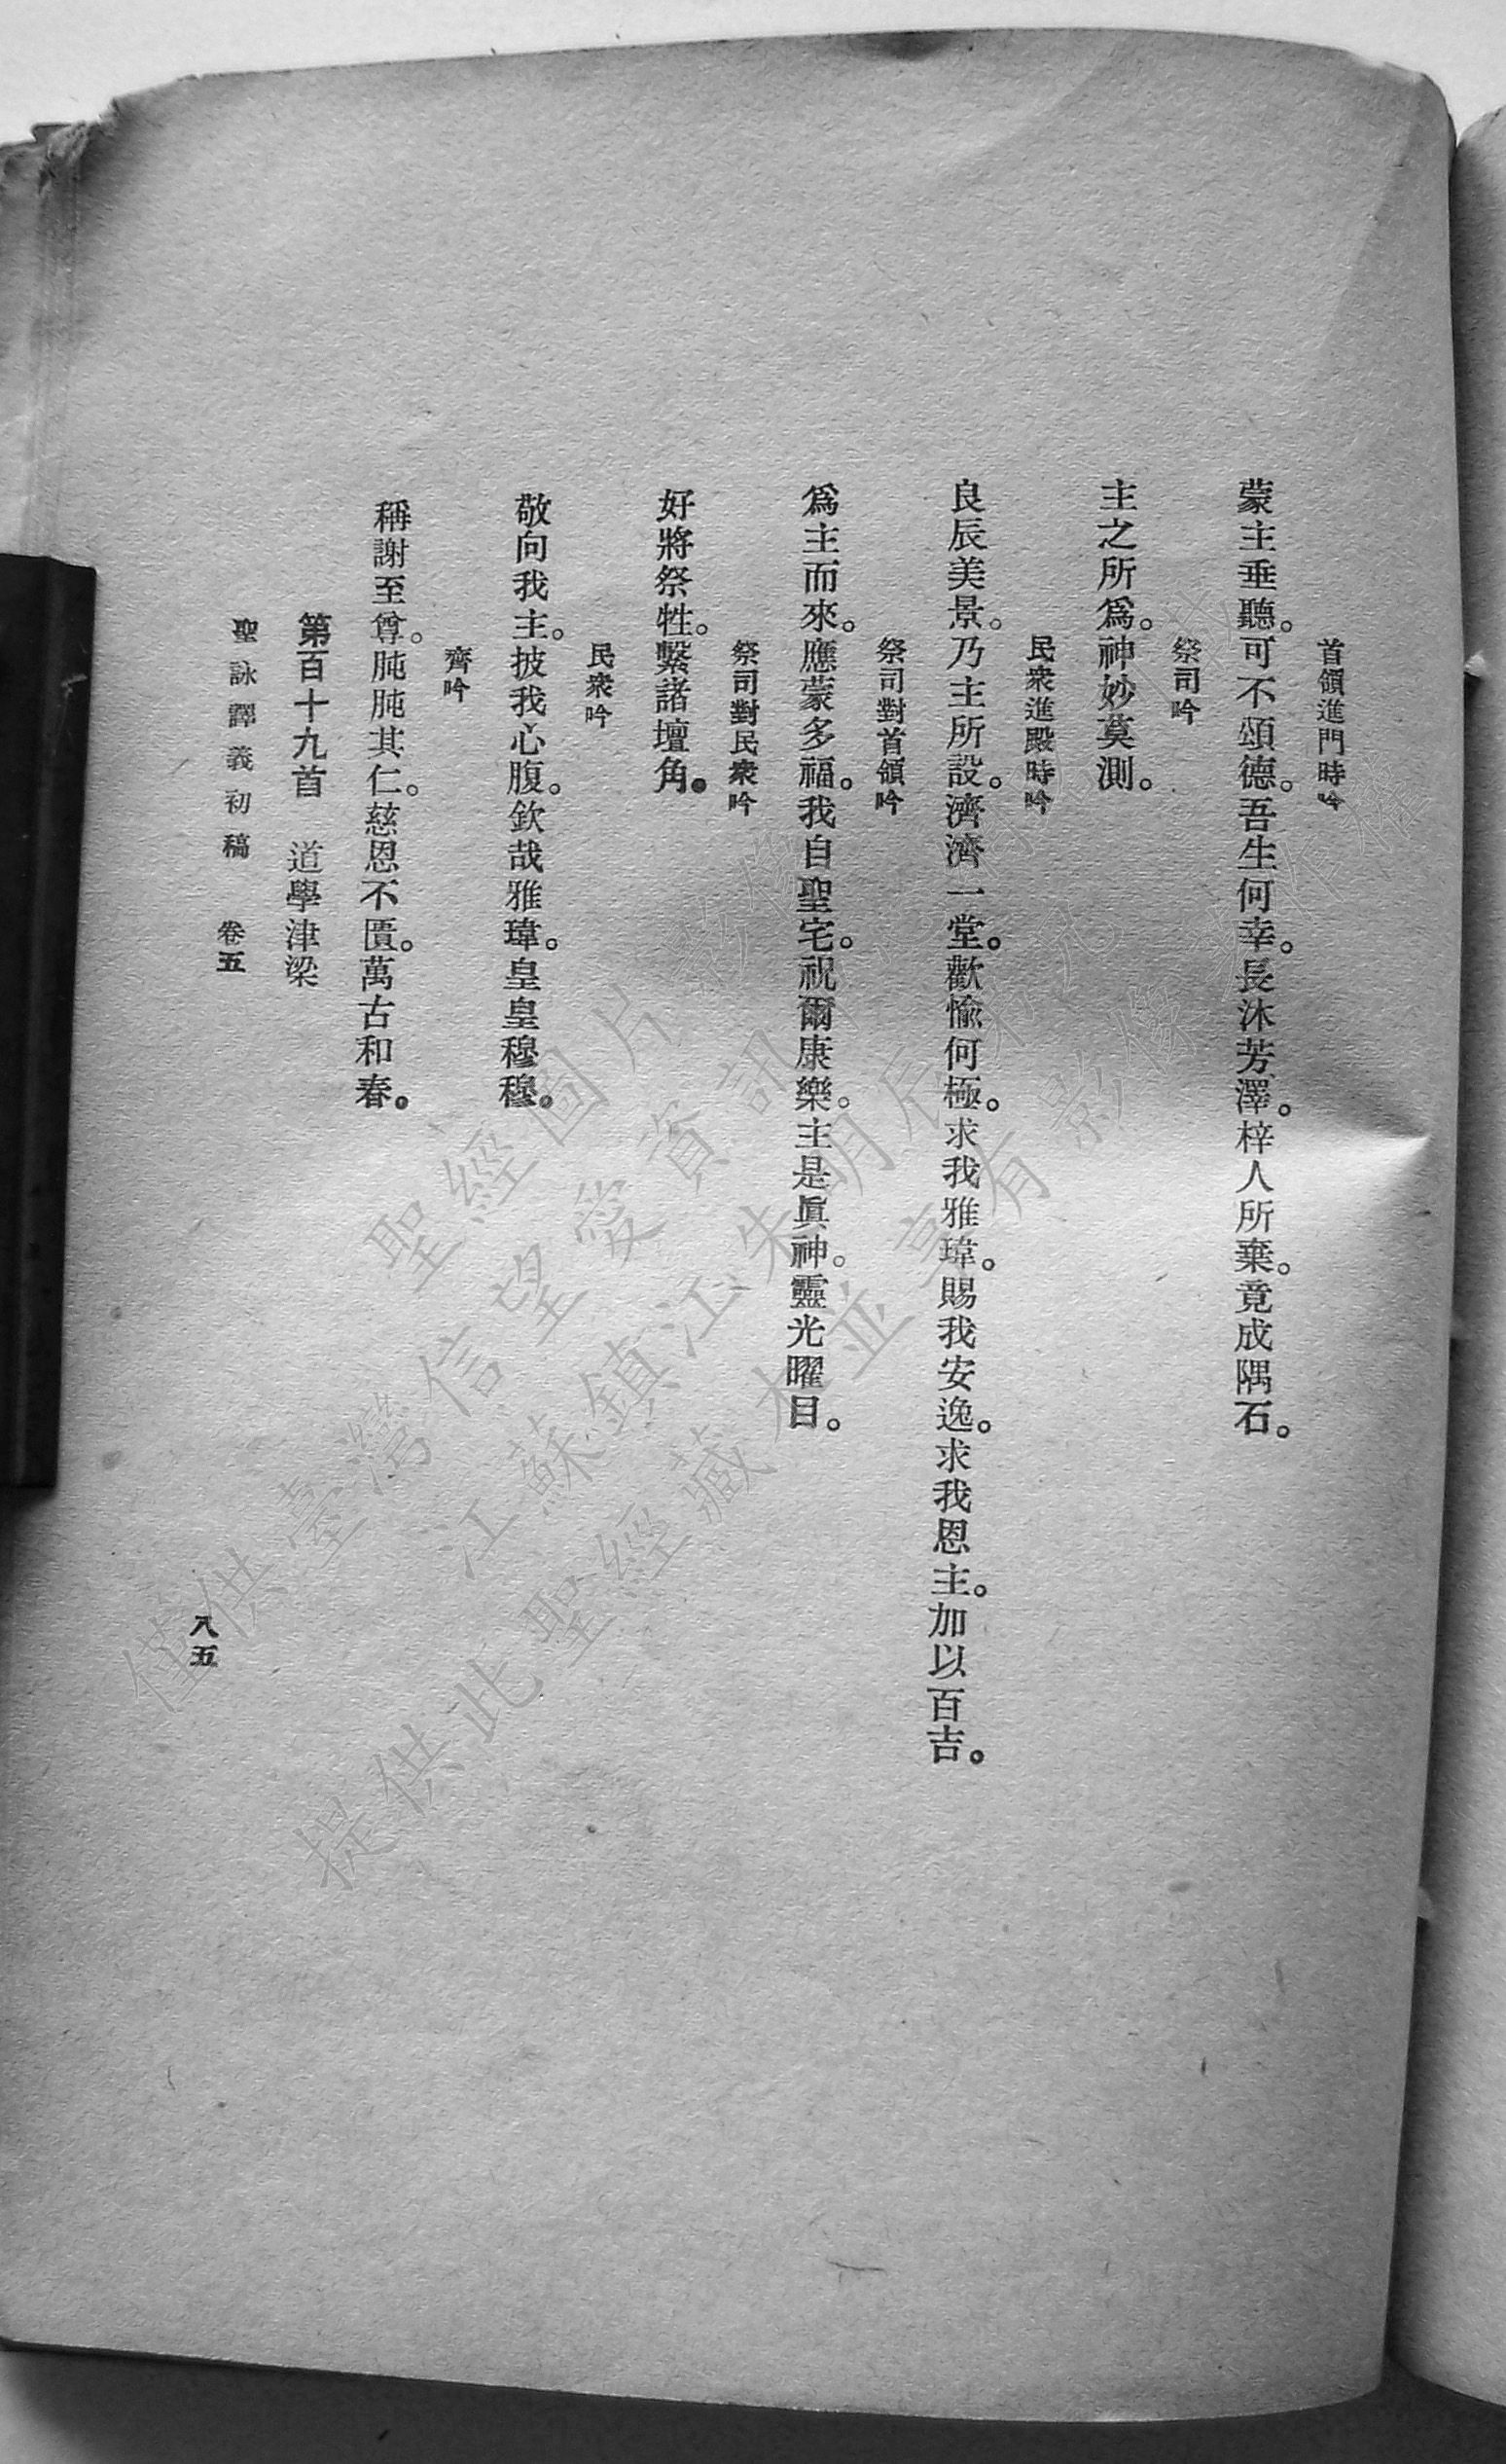 首領進門時吟
蒙主垂聽。可不頌德。吾生何幸。長沐芳澤。梓人所棄。竟成隅石。
祭司吟
主之所爲。神妙莫測。
民衆進殿時吟
良辰美景。乃主所設。濟濟一堂。歡愉何極。求我雅瑋。賜我安逸。求我恩主。加以百吉。
祭司對首領吟
爲主而來。應蒙多福。我自聖宅。祝爾康樂。主是眞神。靈光曜目。
祭司對民衆吟
好將祭牲。繫諸壇角。
民衆吟
敬向我主。披我心腹。欽哉雅瑋。皇皇穆穆。
齊吟
稱謝至尊。肫肫其仁。慈恩不匱。萬古和春。
第百十九首　道學津梁
聖詠譯義初稿　卷五
八五
聖經圖片
僅供臺灣信望愛資訊
江蘇鎮江朱明辰弟兄
提供此聖經藏本並享有影像